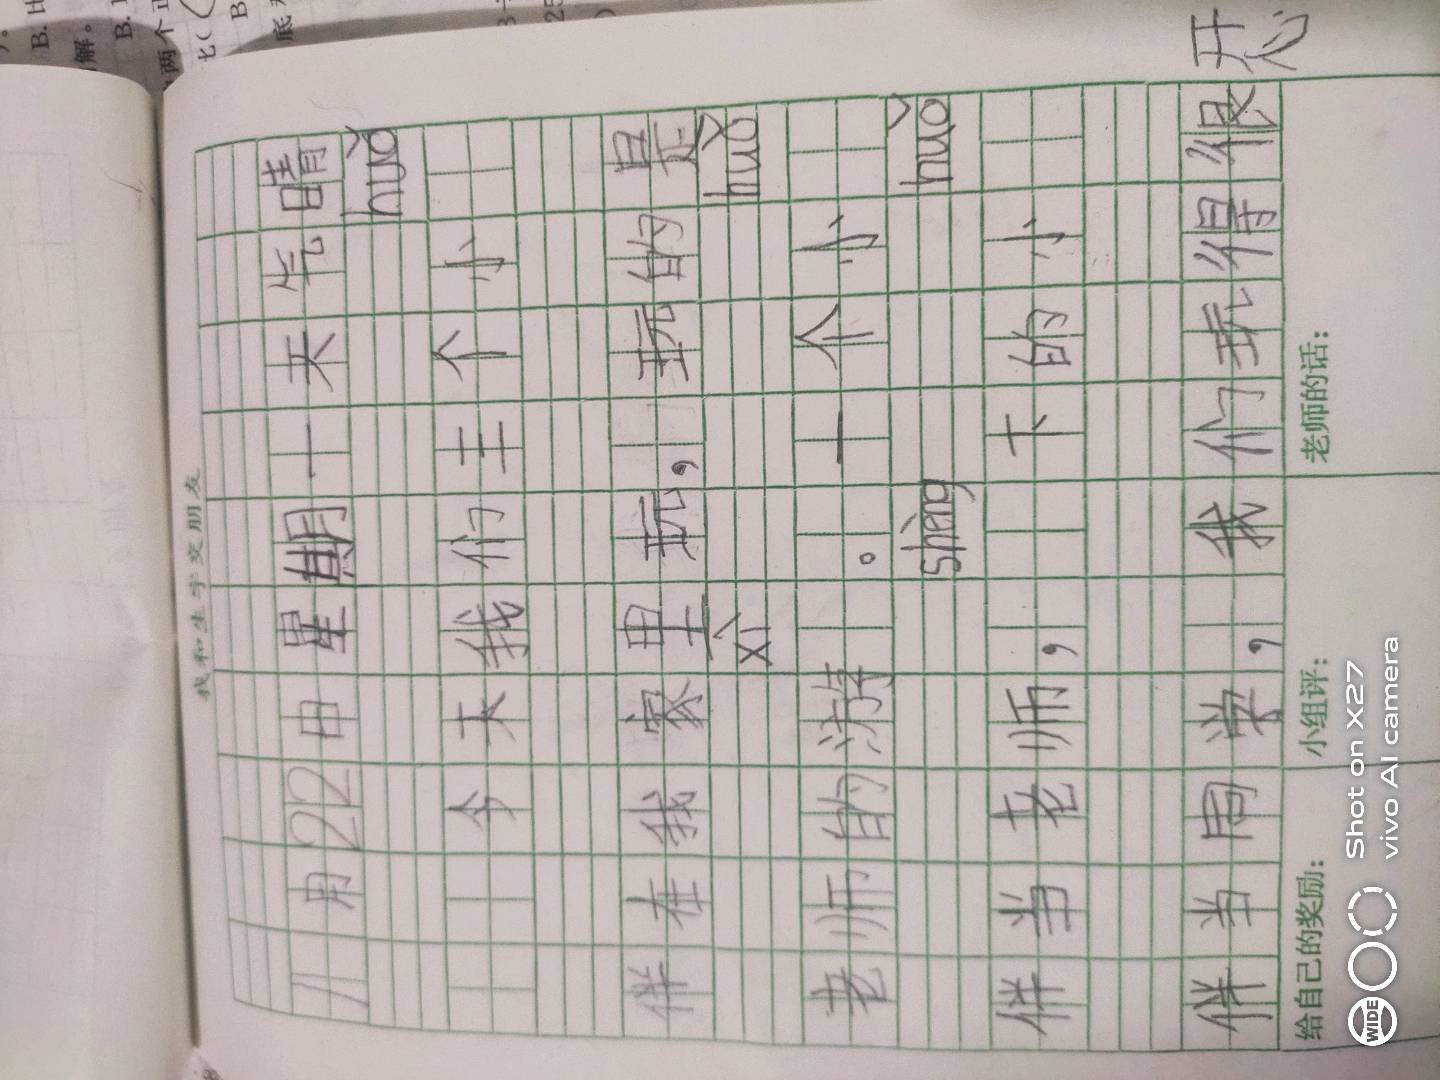 我和生字交朋友
11月22日星期一天气晴
huǒ
今天我们三个小
伴在我家里玩,玩的是
xì huǒ
老师的游。一个小
shèng huǒ
伴当老师,下的小
伴当同学,我们玩得很开心
给自己的奖励: 小组评: 老师的话:
WIDE
Shot on X27
vivo AI camera